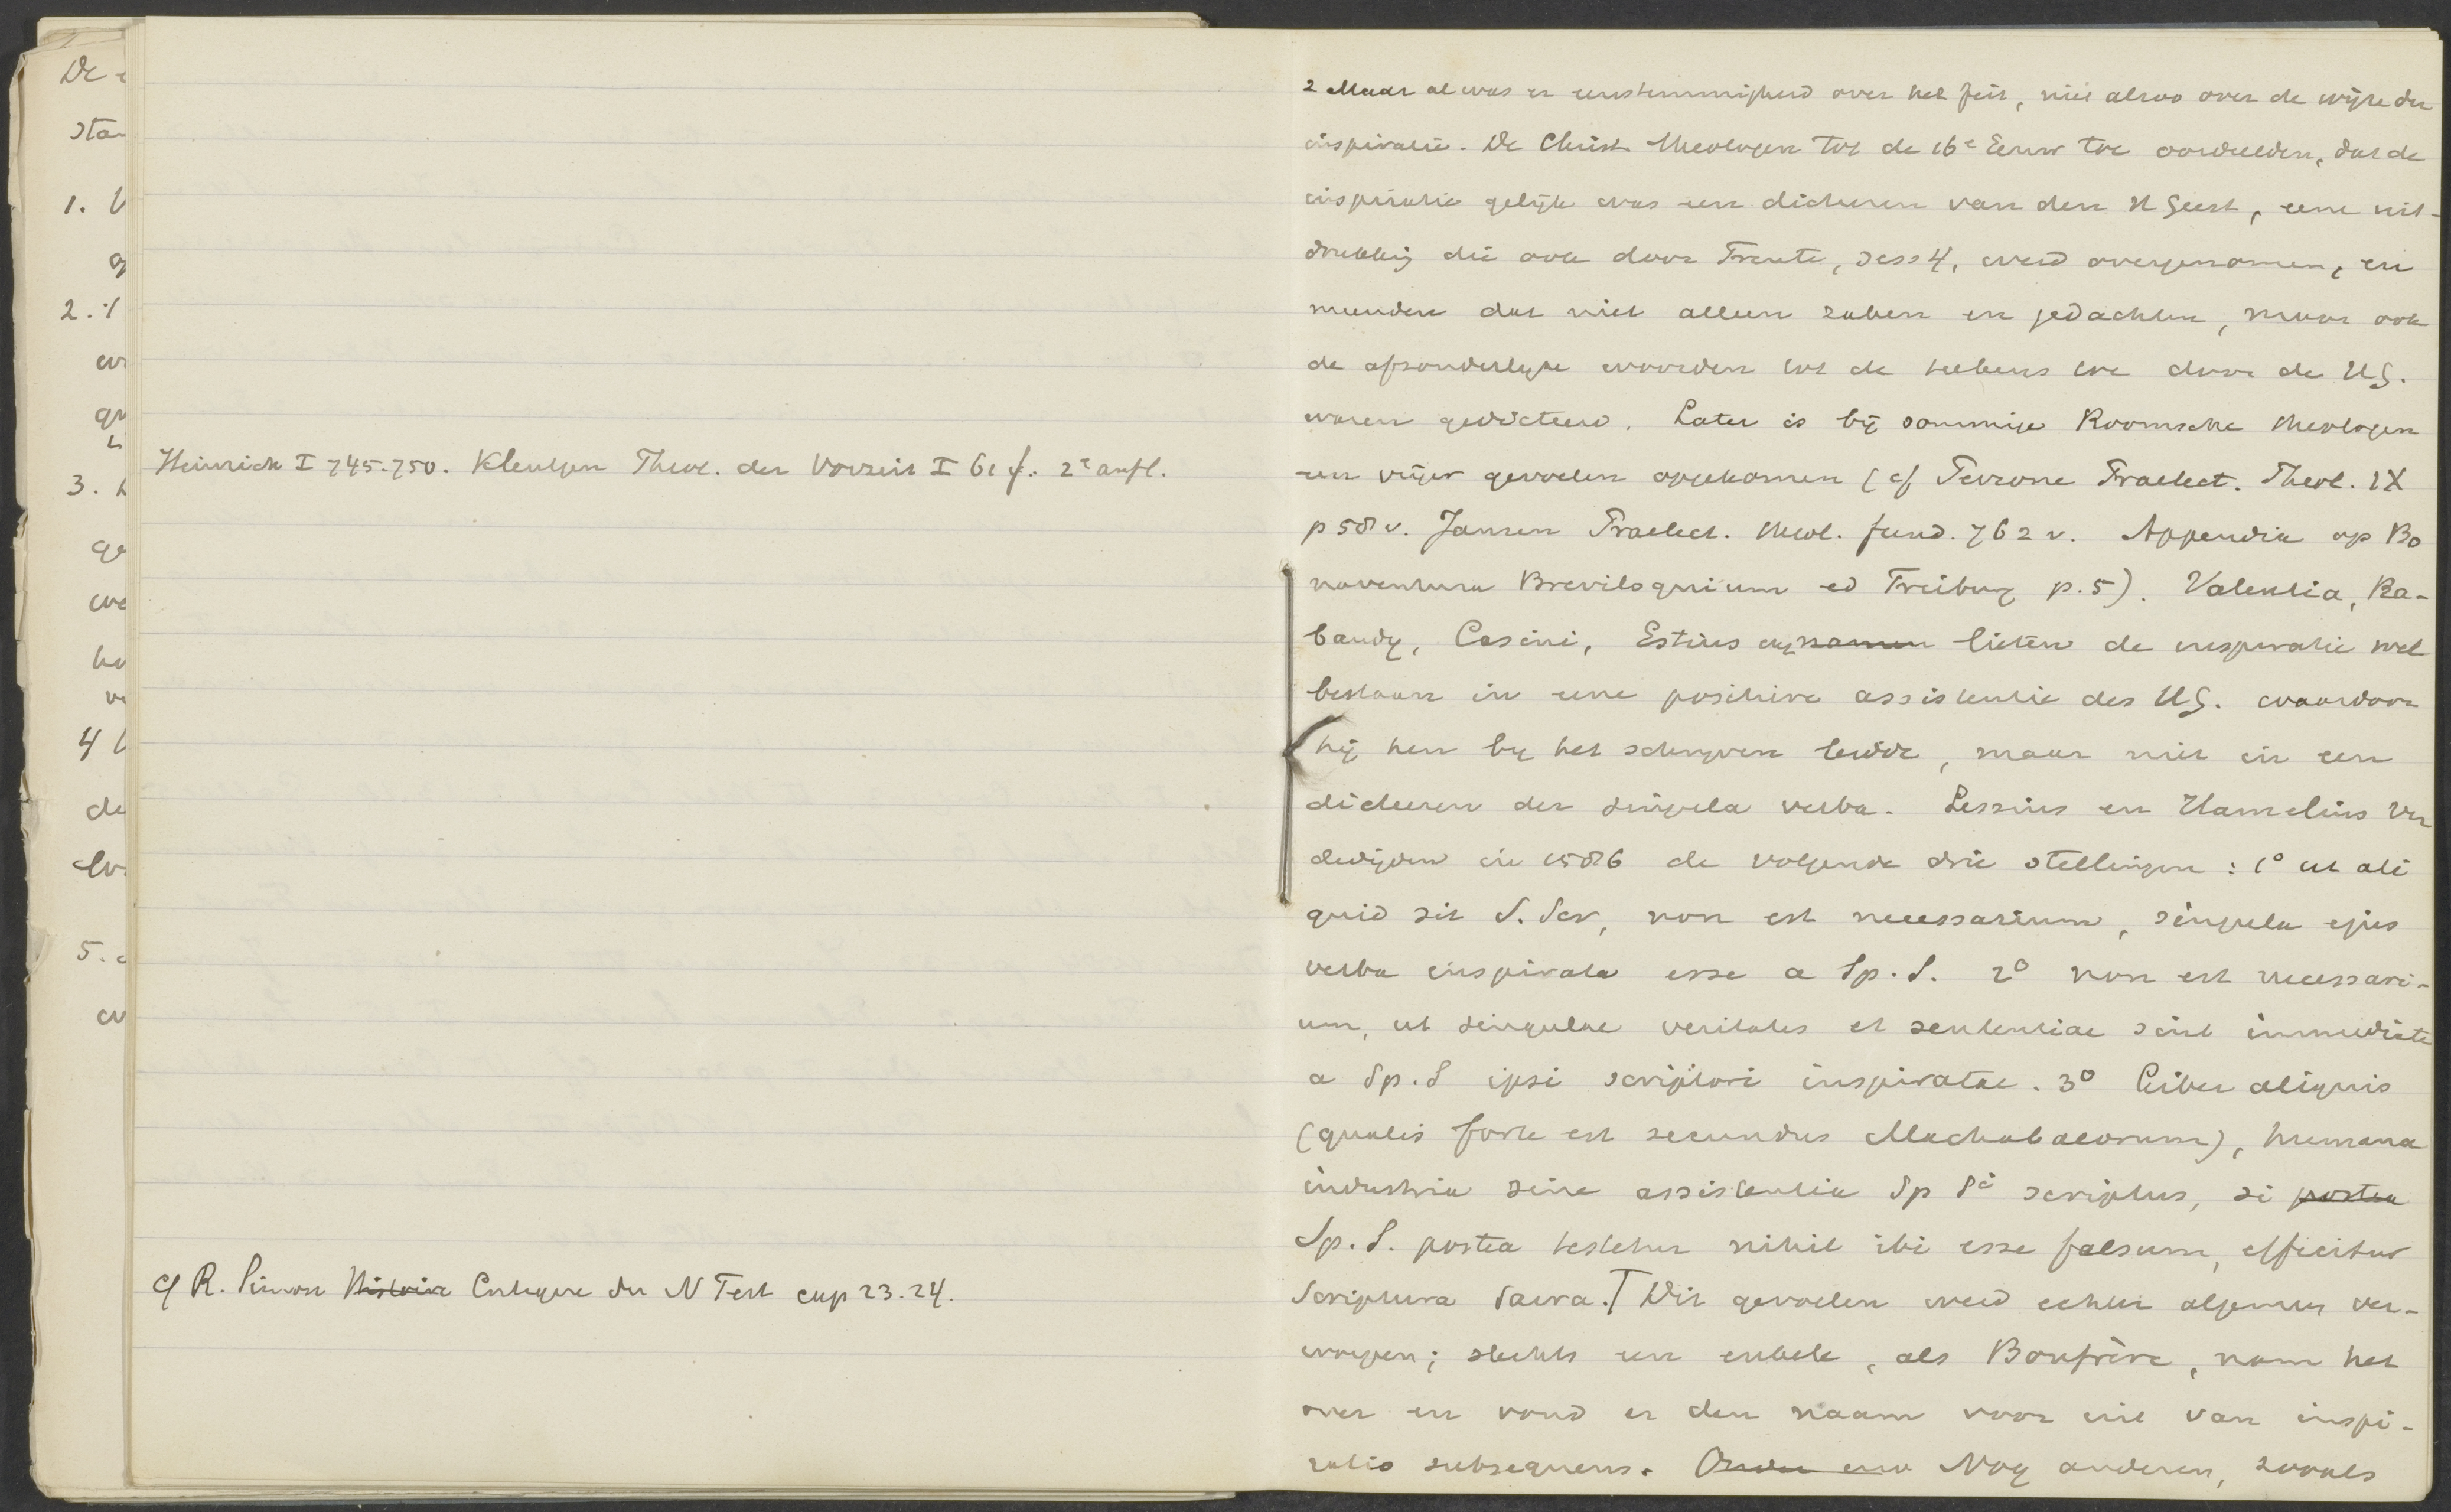 De
sta
1. V
g
2.
wi
gr
3.
ge
we
he
ve
4
de
5.
Heinrich I 745-750. Kleutgen Theol. der Vorzeit I 61 f. 2e aufl.
cf R. Simon Histoire Critique du N Test cap 23.24.
2 Maar al was er eenstemmigheid over het feit, niet alzoo over de wijze der
inspiratie. De Christ theologen tot de 16e Eeuw toe oordeelden, dat de
inspiratie gelijk was een dicteeren van den H Geest, eene uit-
drukking die ook door Trente, sess 4, werd overgenomen, en
meenden dat niet alleen zaken en gedachten, maar ook
de afzonderlijke woorden tot de teekens toe door de HG.
waren gedicteerd. Later is bij sommige Roomsche theologen
een vrijer gevoelen opgekomen (cf Perrone Praelect. Theol. IX
p 58 v. Jansen Praelect. theol. fund. 762 v. Appendix op Bo
naventura Breviloquium ed Freiburg p. 5). Valentia, Ra-
baudy, Casini, Estius enz namen lieten de inspiratie wel
bestaan in eene positieve assistentie des HG. waardoor
hij hen by het schryven leidde, maar niet in een
dicteeren der singula verba. Lessius en Hamelius ver
dedigden in 1586 de volgende drie stellingen: 1° ut ali
quid sit S. Scr, non est necessarium, singula ejus
verba inspirata esse a Sp. S. 2° non est necessari-
um, ut singulae veritates et sententiae sint immediate
a Sp. S ipsi scriptori inspiratae. 3° Liber aliquis
(qualis forte est secundus Machabaeorum), humana
industria sine assistentia Sp Si scriptus, si postea
Sp. S. postea testetur nihil ibi esse falsum, efficitur
Scriptura Sacra. Dit gevoelen werd echter algemeen ver-
worpen; slechts een enkele, als Bonfrère, nam het
over en vond er den naam voor uit van inspi-
ratio subsequens. Nog anderen, zooals